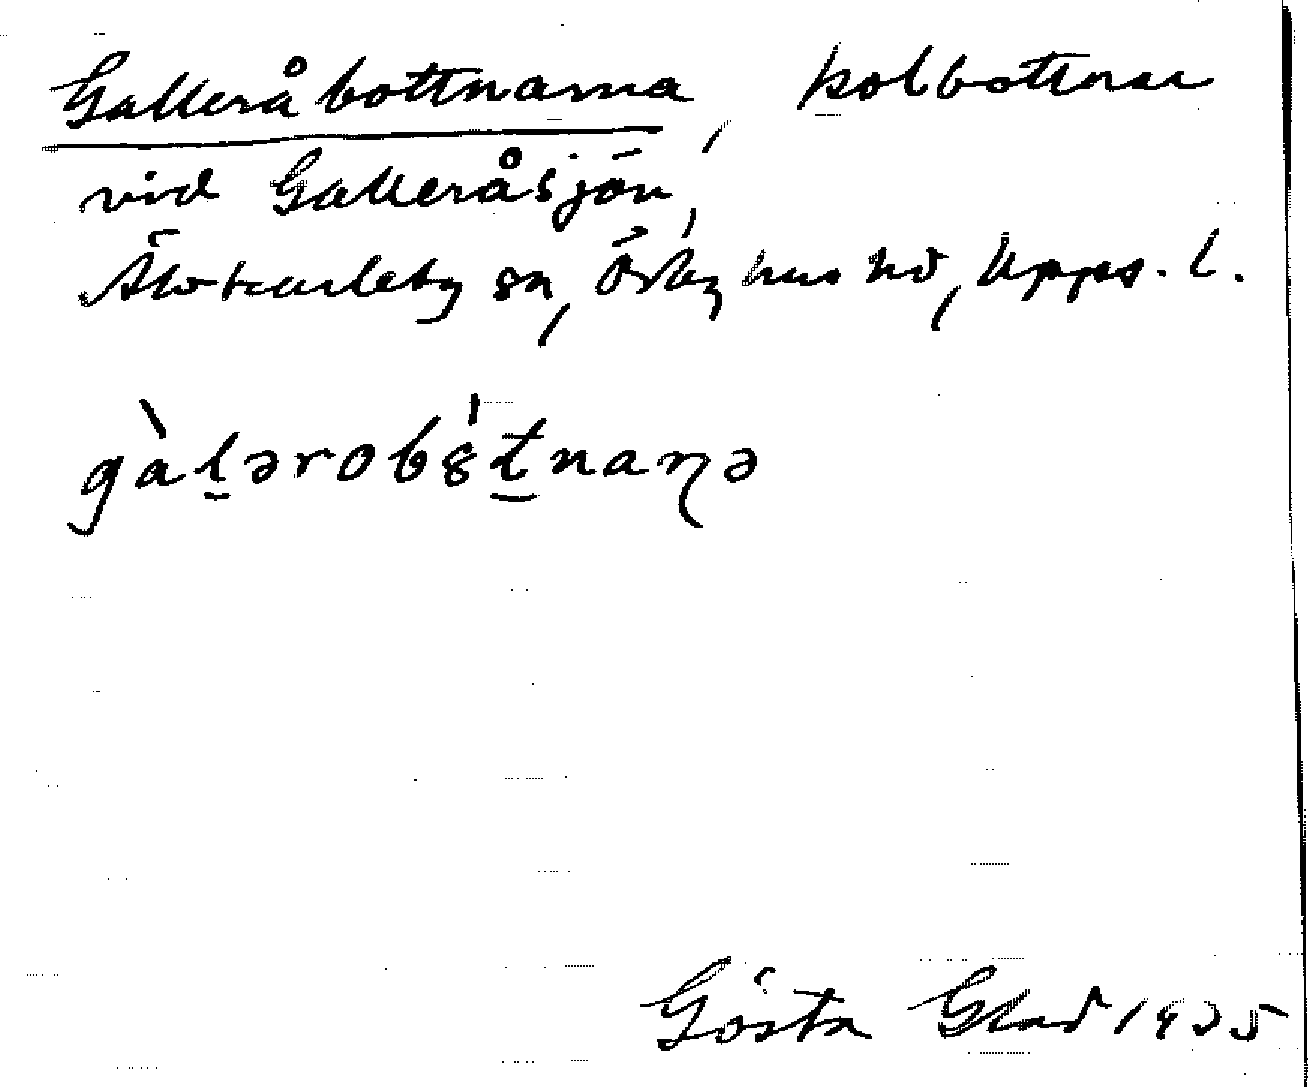 Galleråbottnarna, kolbottnar
vid Galleråsjön,
Älvkarleby sn, Örbyhus hd, Upps. l.
gàl̠ərobȣ́t̠naɳə
Gösta Glad 1935